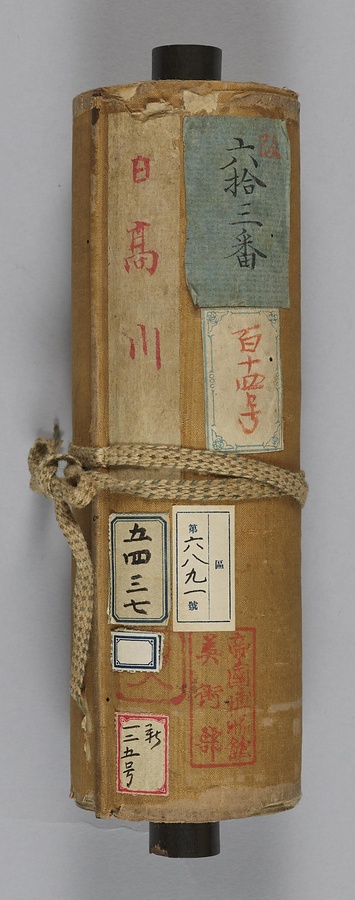 日高川
六拾三番
百十四号
五四三七
區
第六八九一號
帝国博物館
美術部
新
一二五号